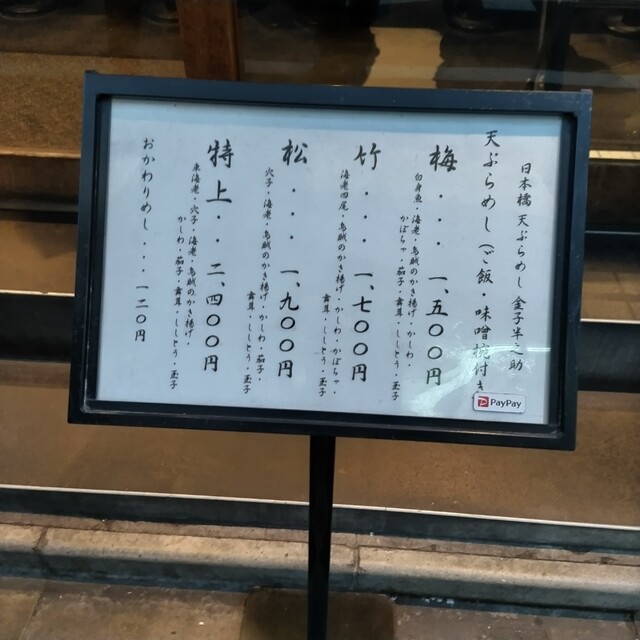 日本橋 天ぷらめし 金子半之助
天ぷらめし（ご飯・味噌椀付き
梅・・・一、五〇〇円
白身魚・海老・烏賊のかき揚げ・かしわ・
かぼちゃ・茄子・舞茸・ししとう・玉子
竹・・・一、七〇〇円
海老二尾・烏賊のかき揚げ・かしわ・かぼちゃ・
舞茸・ししとう・玉子
松・・・一、九〇〇円
穴子・海老・烏賊のかき揚げ・かしわ・茄子・
舞茸・ししとう・玉子
特上・・二、四〇〇円
車海老・穴子・海老・烏賊のかき揚げ・
かしわ・茄子・舞茸・ししとう・玉子
おかわりめし・・・一二〇円
PayPay